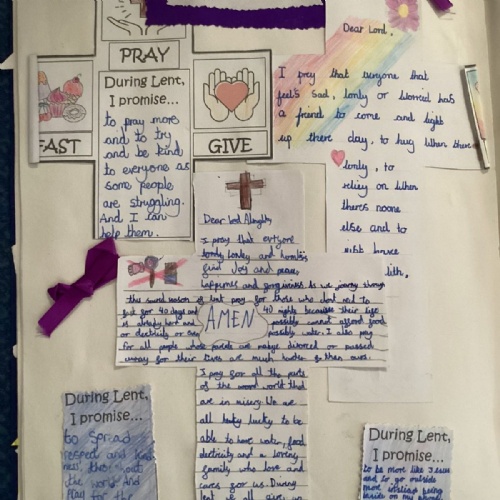 PRAY
FAST
GIVE
During Lent,
I promise...
to pray more
and to try
and be kind
to everyone as
some people
are struggling.
And I can
help them.
Dear Lord,
I pray that everyone that
feel's sad, lonly or worried has
a friend to come and light
up there day, to hug when there
lonly, to
reliey on when
theres noone
else and to
Dear Lord Almighty
I pray that
find Joy and peace,
and forgivness. As we journey through
this season of lent pray for those who
fast for 40 days and 40 nights because their life
is already hard and possibly cannot afford food
or electricity or even possibly water. I also pray
for all people whose parents are divorced or passed
away for their lives are much harder then ours.
AMEN
I pray for all the parts
of the world that
are in misery. We are
all lucky to be
able to have water, food
electricity and a loving
family who love and
cares for us. During
lent
During Lent,
I promise...
to spread
respect and
ness, throughout
the world and
pray for the
During Lent,
I promise...
to be more like Jesus
and to go outside
more instead being
inside on my